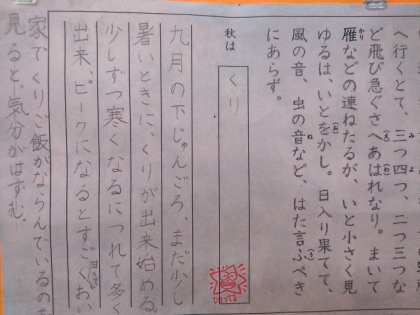 へ行くとて、三つ四つ、二つ三つな
ど飛び急ぐさへあはれなり。まいて
雁などの連ねたるが、いと小さく見
ゆるは、いとをかし。日入り果てて、
風の音、虫の音など、はた言ふべき
にあらず。
秋は
くり
九月の下じゅんごろ、まだ少し
暑いときに、くりが出来始める。
少しずつ寒くなるにつれて多く
出来、ピークになるとすごくおい
家でくりご飯がならんでいるの
見ると、気分がはずむ。